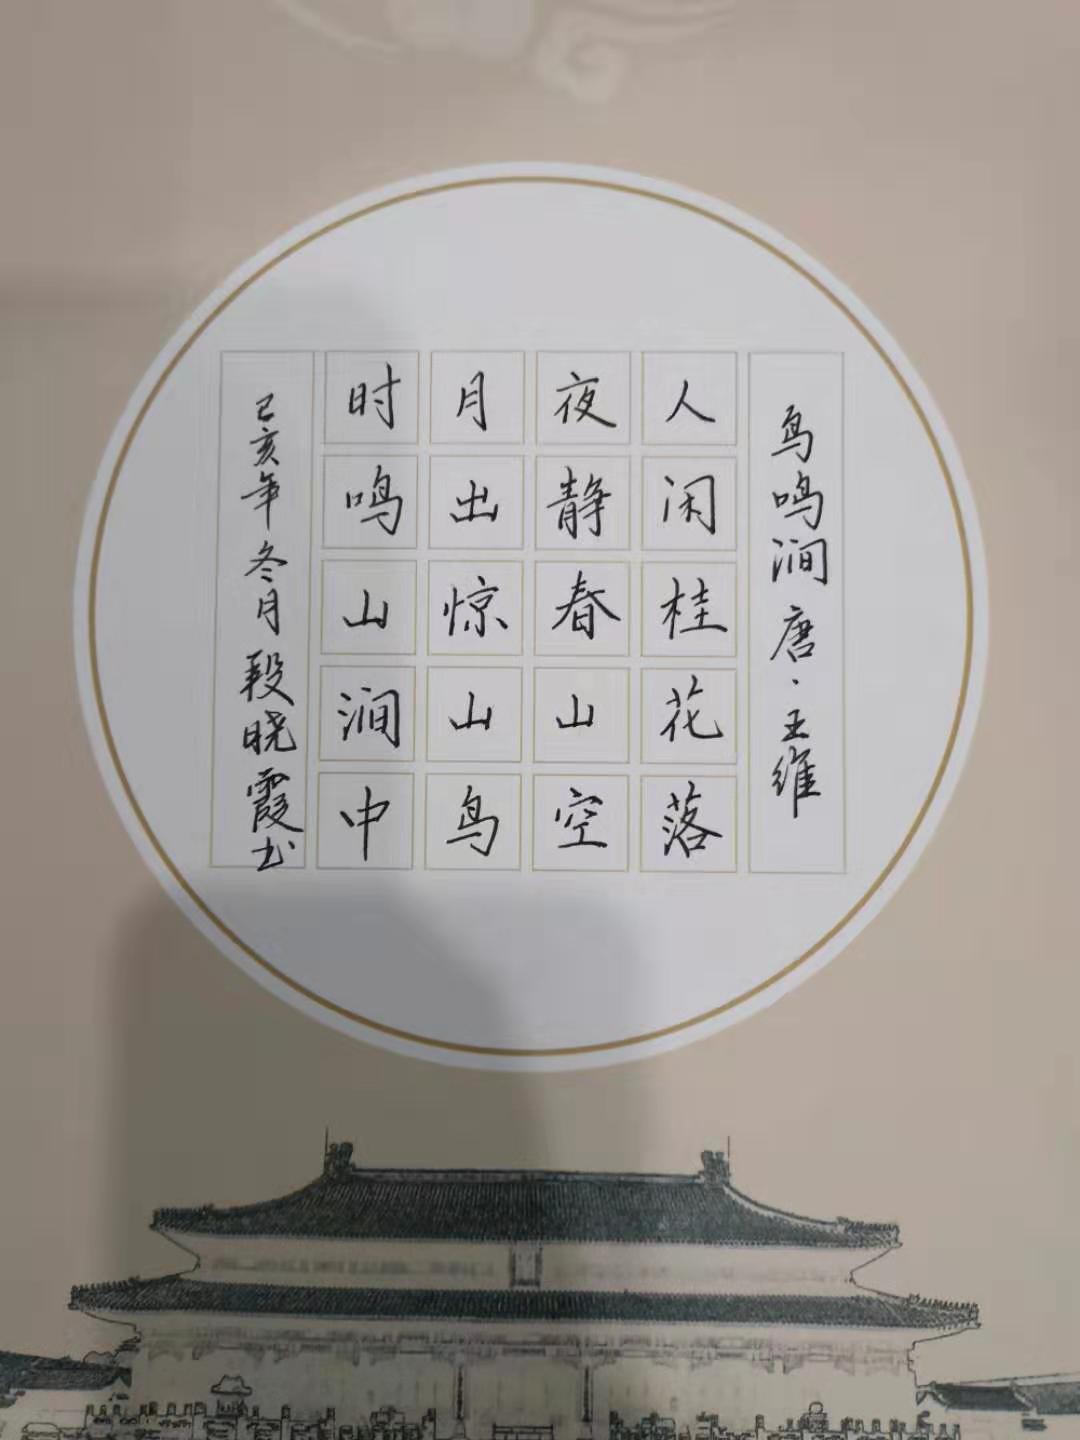 鸟鸣涧 唐·王维
人闲桂花落
夜静春山空
月出惊山鸟
时鸣山涧中
己亥年冬月段晓霞书